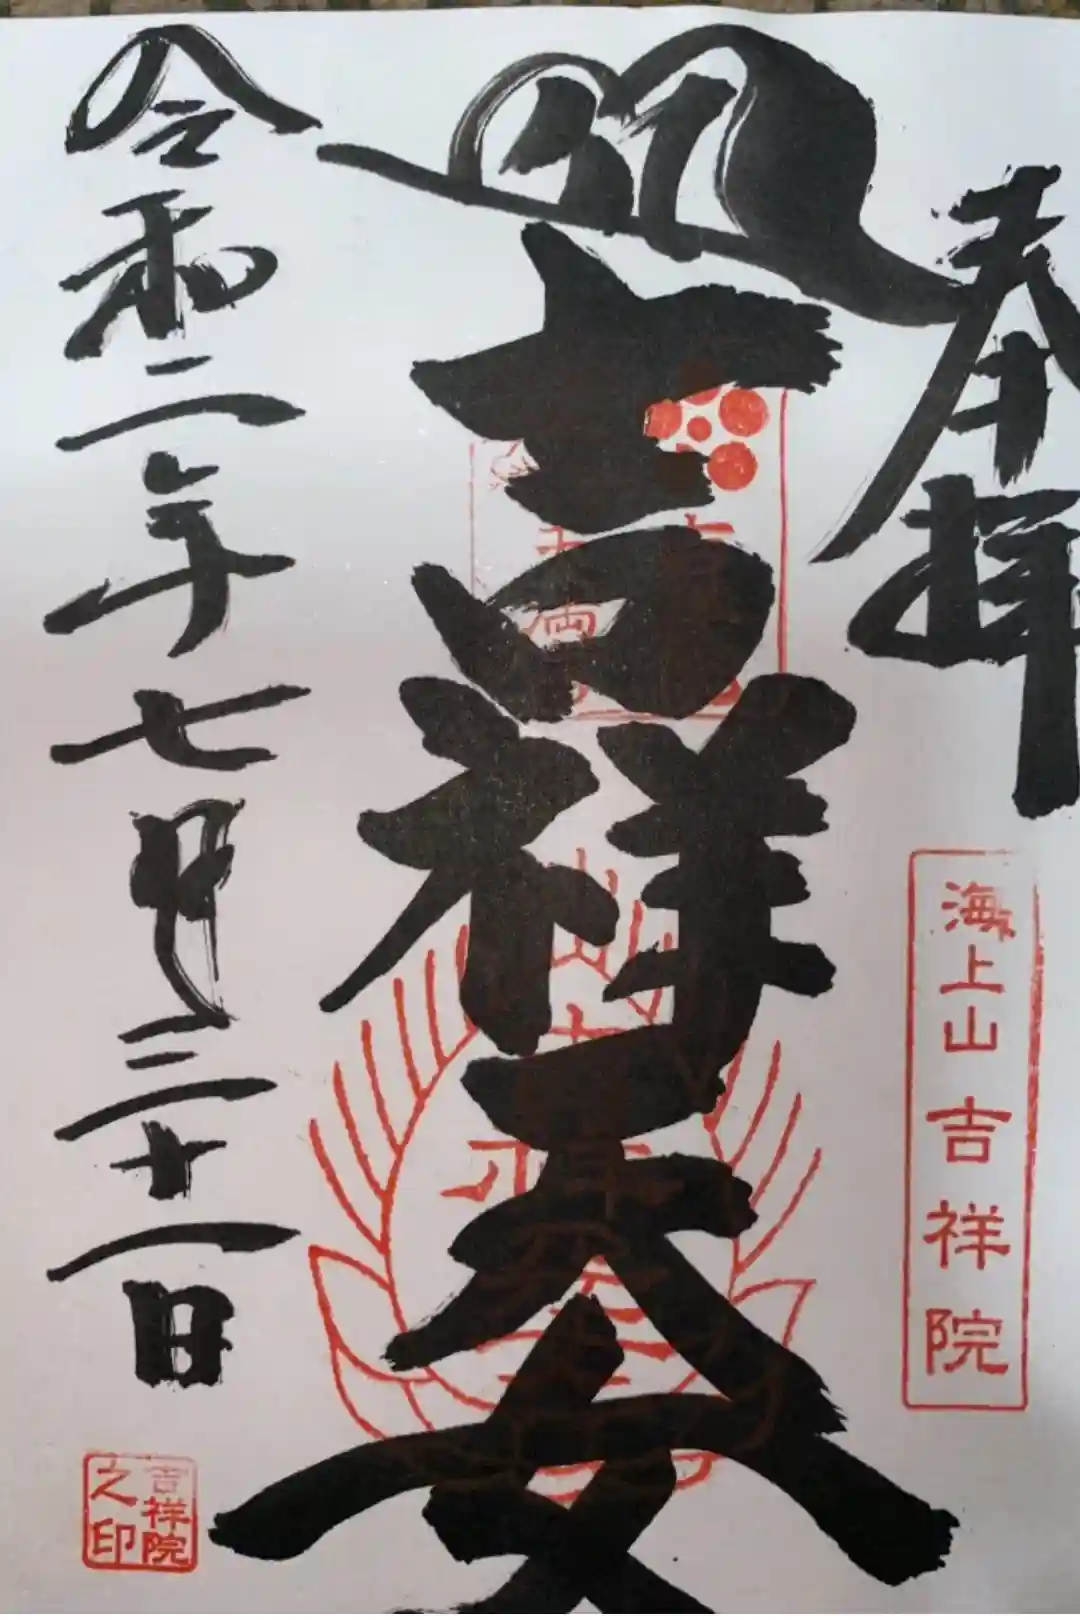 奉拝
海上山吉祥院
吉祥天女
令和二年七月三十一日
吉祥院
之印